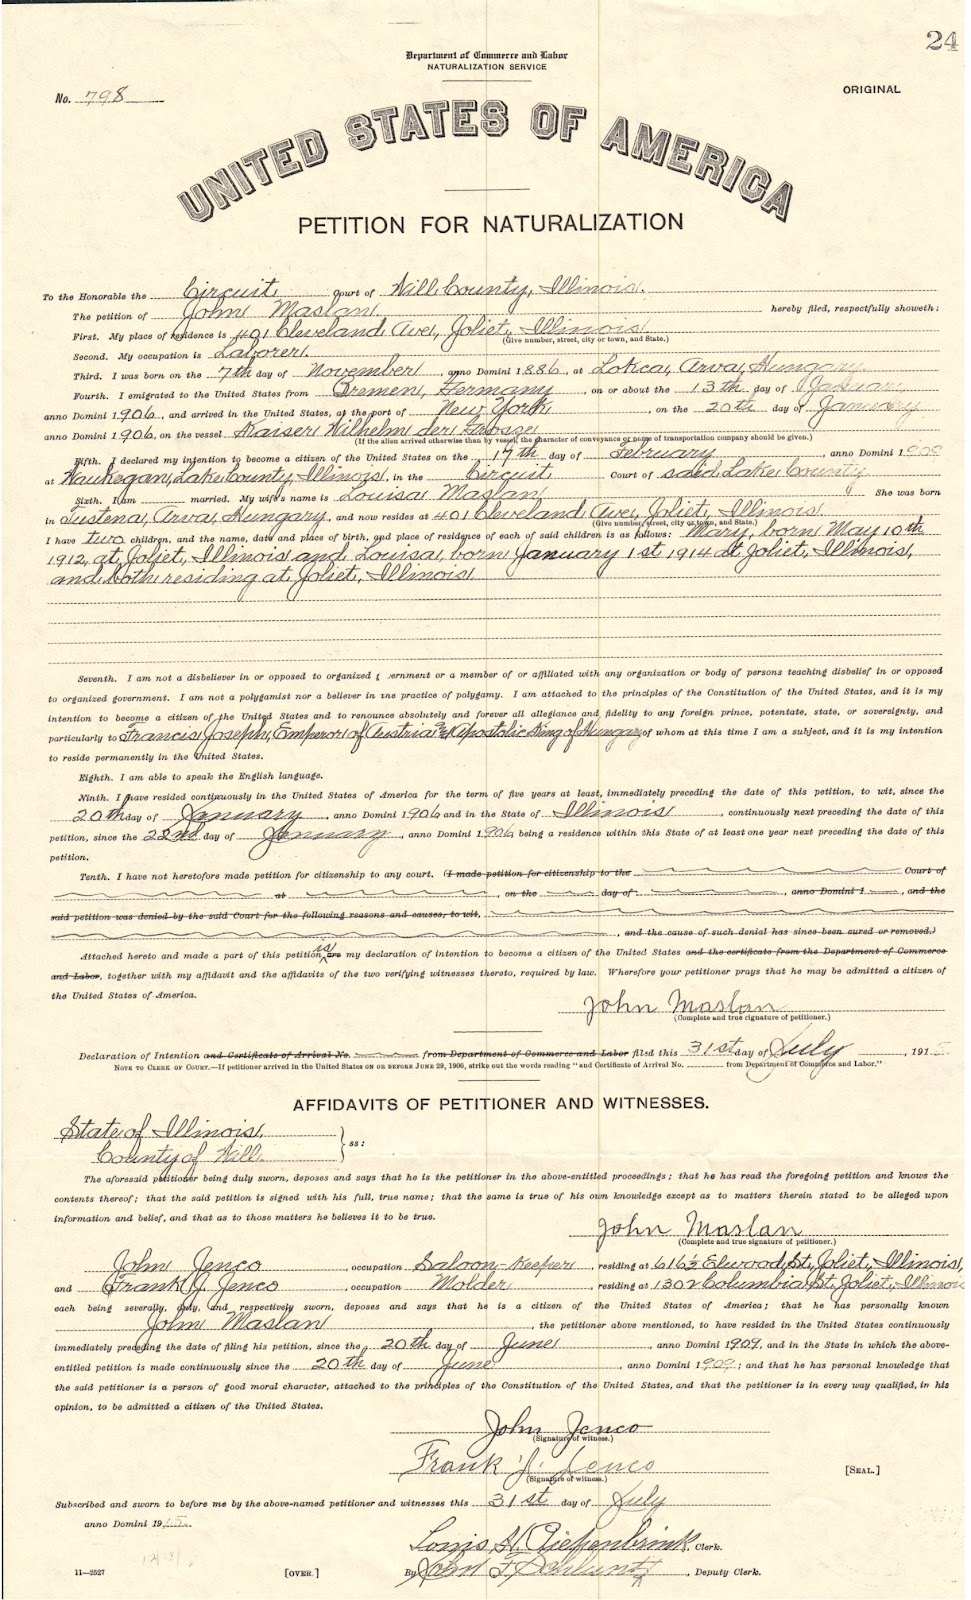 24
Department of Commerce and Labor
NATURALIZATION SERVICE
No. 798
ORIGINAL
UNITED STATES OF AMERICA
PETITION FOR NATURALIZATION
To the Honorable the Circuit Court of Will County, Illinois.
The petition of John Maslan hereby filed, respectfully showeth:
First. My place of residence is 401 Cleveland Ave, Joliet, Illinois
(Give number, street, city or town, and State.)
Second. My occupation is Laborer.
Third. I was born on the 7th day of November, anno Domini 1886, at Lokca, Arva, Hungary
Fourth. I emigrated to the United States from Bremen, Germany, on or about the 13th day of January
anno Domini 1906, and arrived in the United States, at the port of New York, on the 20th day of January
anno Domini 1906, on the vessel Kaiser Wilhelm der Grosze
(If the alien arrived otherwise than by vessel, the character of conveyance or name of transportation company should be given.)
Fifth. I declared my intention to become a citizen of the United States on the 17th day of February, anno Domini 1909
at Waukegan, Lake County, Illinois, in the Circuit Court of said Lake County
Sixth. I am married. My wife's name is Louisa Maslan She was born
in Tustena, Arva, Hungary, and now resides at 401 Cleveland Ave, Joliet, Illinois.
(Give number, street, city or town, and State.)
I have two children, and the name, date and place of birth, and place of residence of each of said children is as follows: Mary, born May 10th
1912, at Joliet, Illinois and Louisa, born January 1st 1914 at Joliet, Illinois,
and both residing at Joliet, Illinois
Seventh. I am not a disbeliever in or opposed to organized government or a member of or affiliated with any organization or body of persons teaching disbelief in or opposed
to organized government. I am not a polygamist nor a believer in the practice of polygamy. I am attached to the principles of the Constitution of the United States, and it is my
intention to become a citizen of the United States and to renounce absolutely and forever all allegiance and fidelity to any foreign prince, potentate, state, or sovereignty, and
particularly to Francis Joseph, Emperor of Austria & Apostolic King of Hungary of whom at this time I am a subject, and it is my intention
to reside permanently in the United States.
Eighth. I am able to speak the English language.
Ninth. I have resided continuously in the United States of America for the term of five years at least, immediately preceding the date of this petition, to wit, since the
20th day of January, anno Domini 1906 and in the State of Illinois, continuously next preceding the date of this
petition, since the 22nd day of January, anno Domini 1906 being a residence within this State of at least one year next preceding the date of this
petition.
Tenth. I have not heretofore made petition for citizenship to any court. (I made petition for citizenship to the Court of
at , on the day of , anno Domini 1 , and the
said petition was denied by the said Court for the following reasons and causes, to wit,
, and the cause of such denial has since been cured or removed.)
Attached hereto and made a part of this petition is are my declaration of intention to become a citizen of the United States and the certificate from the Department of Commerce
and Labor, together with my affidavit and the affidavits of the two verifying witnesses thereto, required by law. Wherefore your petitioner prays that he may be admitted a citizen of
the United States of America.
John Maslan
(Complete and true signature of petitioner.)
Declaration of Intention and Certificate of Arrival No. from Department of Commerce and Labor filed this 31st day of July, 1915.
NOTE TO CLERK OF COURT.—If petitioner arrived in the United States ON OR BEFORE JUNE 29, 1906, strike out the words reading "and Certificate of Arrival No. from Department of Commerce and Labor."
AFFIDAVITS OF PETITIONER AND WITNESSES.
State of Illinois.
County of Will. ss:
The aforesaid petitioner being duly sworn, deposes and says that he is the petitioner in the above-entitled proceedings; that he has read the foregoing petition and knows the
contents thereof; that the said petition is signed with his full, true name; that the same is true of his own knowledge except as to matters therein stated to be alleged upon
information and belief, and that as to those matters he believes it to be true.
John Maslan
(Complete and true signature of petitioner.)
John Jenco, occupation Saloon-Keeper, residing at 616½ Elwood St, Joliet, Illinois,
and Frank J. Jenco, occupation Molder, residing at 1302 Columbia St, Joliet, Illinois
each being severally, duly, and respectively sworn, deposes and says that he is a citizen of the United States of America; that he has personally known
John Maslan, the petitioner above mentioned, to have resided in the United States continuously
immediately preceding the date of filing his petition, since the 20th day of June, anno Domini 1909, and in the State in which the above-
entitled petition is made continuously since the 20th day of June, anno Domini 1909; and that he has personal knowledge that
the said petitioner is a person of good moral character, attached to the principles of the Constitution of the United States, and that the petitioner is in every way qualified, in his
opinion, to be admitted a citizen of the United States.
John Jenco
(Signature of witness.)
Frank J. Jenco
(Signature of witness.)
[SEAL.]
Subscribed and sworn to before me by the above-named petitioner and witnesses this 31st day of July
anno Domini 1915.
Clerk.
11—2527
[OVER.]
By John F. , Deputy Clerk.